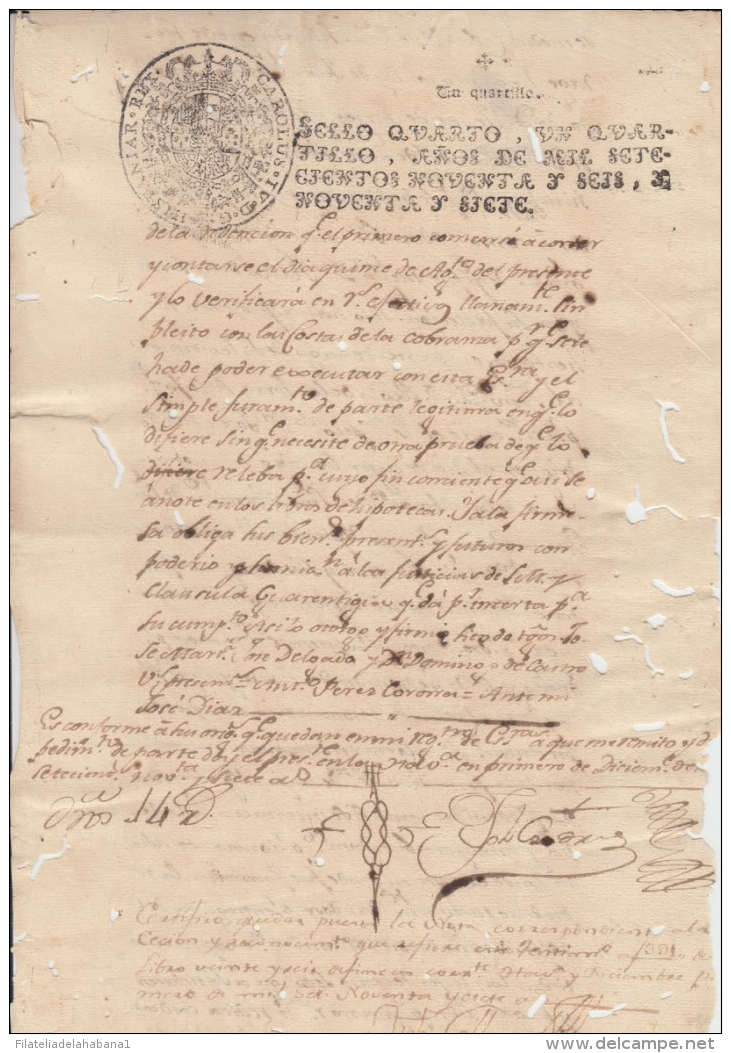 CAROLUS IV D. G. HISPANIAR. REX
Un quartillo.
SELLO QVARTO, VN QVAR-
TILLO, AÑOS DE MIL SETE-
CIENTOS NOVENTA Y SEIS, Y
NOVENTA Y SIETE.
de la redencion q.e el primero comensó à correr
y contarse el dia quinse de Ag.to del presente
y lo verificará en r.s efectivos llanam.te sin
pleito con las Costas de la cobranza p.r q.e se le
ha de poder executar con esta Es.ra y el
simple juram.to de parte legitima en q.e lo
difiere sin q.e necesite de otra prueba de q.e lo
releba p.a cuyo fin consiente q.e asi se
anote en los libros de hipotecas. Y a la firme-
sa obliga sus bien.s present.s y futuros con
poderio y sumis.n à las Justicias de S. M. y
Clausula Guarentigia q.e dá p.r inserta p.a
su cump.to Asi lo otorgo y firmo siendo tgos. Jo
se Delgado y D.n Domingo de Castro
presen.s = Ant.o Peres Correa = Ante mi
José Dias
Es conforme à su orig.l q.e quedan en mi rg.tro de Es.ras à que me remito y de
pedim.to de parte doy el pres.te en la Hav.a en primero de Diciem.e de
setecien.s nov.ta y siete a.s
14
Certifico quedar puesta la Nota correspondiente a la
Cecion y reconocim.to que refiere
Libro veinte y seis Hav.a y Diciembre pri
mero de mil set. Noventa y siete
Filateliadelahabana1